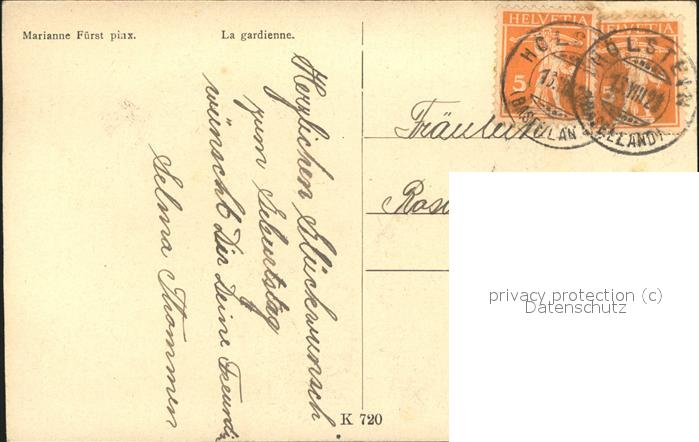 Marianne Fürst pinx.
La gardienne.
Herzlichen Glückwunsch
zum Geburtstag
wünscht Dir Deine Freundin
Selma Thommen
K 720
HELVETIA
5
HELVETIA
5
HÖLSTEIN
(BASELLAND)
HÖLSTEIN
(BASELLAND)
Fräulein
privacy protection (c)
Datenschutz